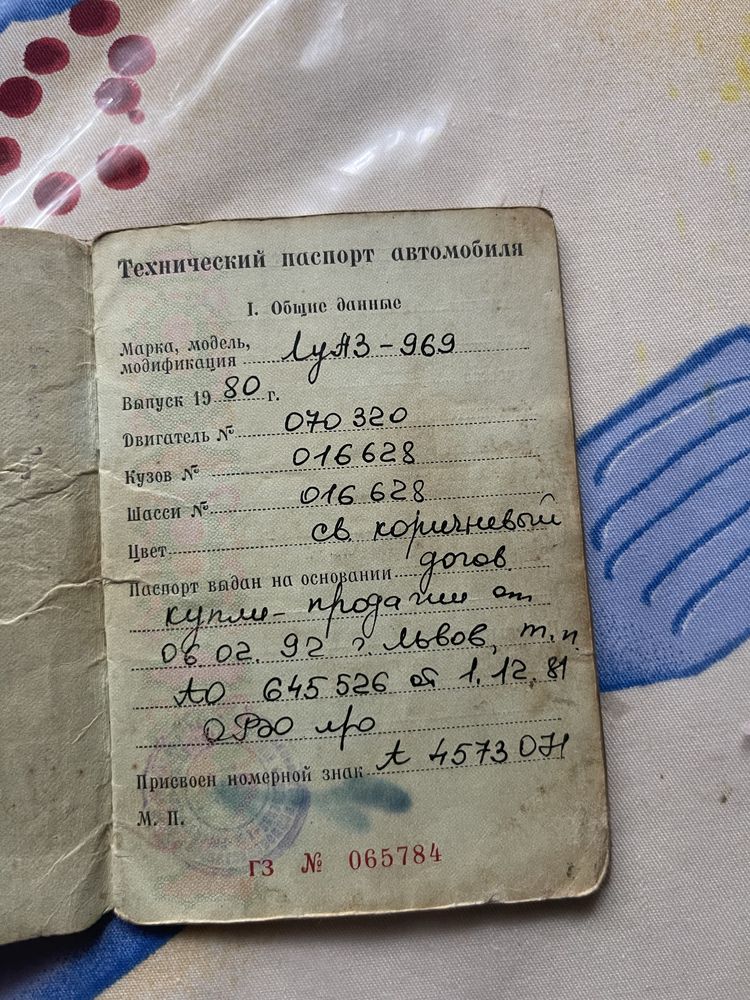 Технический паспорт автомобиля
I. Общие данные
Марка, модель,
модификация ЛуАЗ-969
Выпуск 19 80 г.
Двигатель № 070320
Кузов № 016628
Шасси № 016628
Цвет св коричневый
Паспорт выдан на основании догов
купли-продажи от
06 02. 92 г. Львов, т.п.
АО 645526 от 1.12.81
ОРЭО
Присвоен номерной знак А 4573 ОН
М. П.
ГЗ № 065784